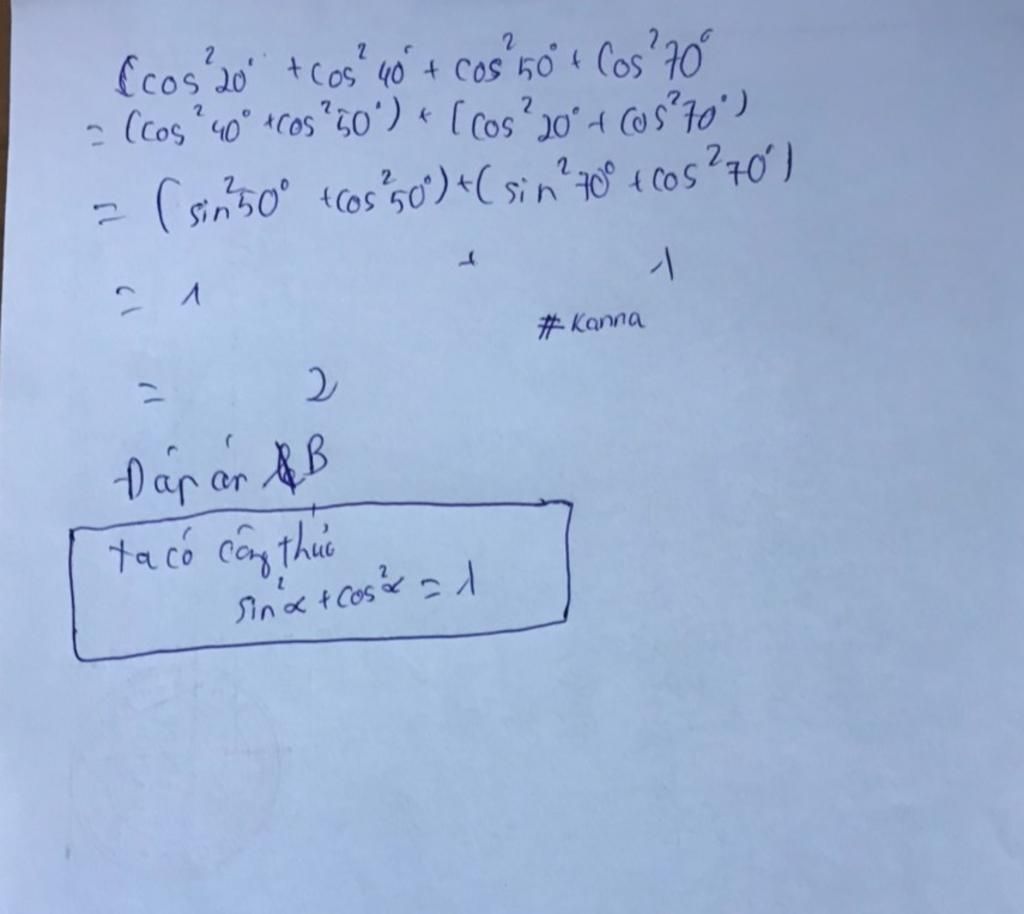 (cos²20° + cos²40° + cos²50° + Cos²70°
= (cos²40° + cos²50°) + (cos²20° + cos²70°)
= (sin²50° + cos²50°) + (sin²70° + cos²70°)
= 1 + 1
#Kanna
= 2
Đáp án B
ta có công thức
sin²α + cos²α = 1